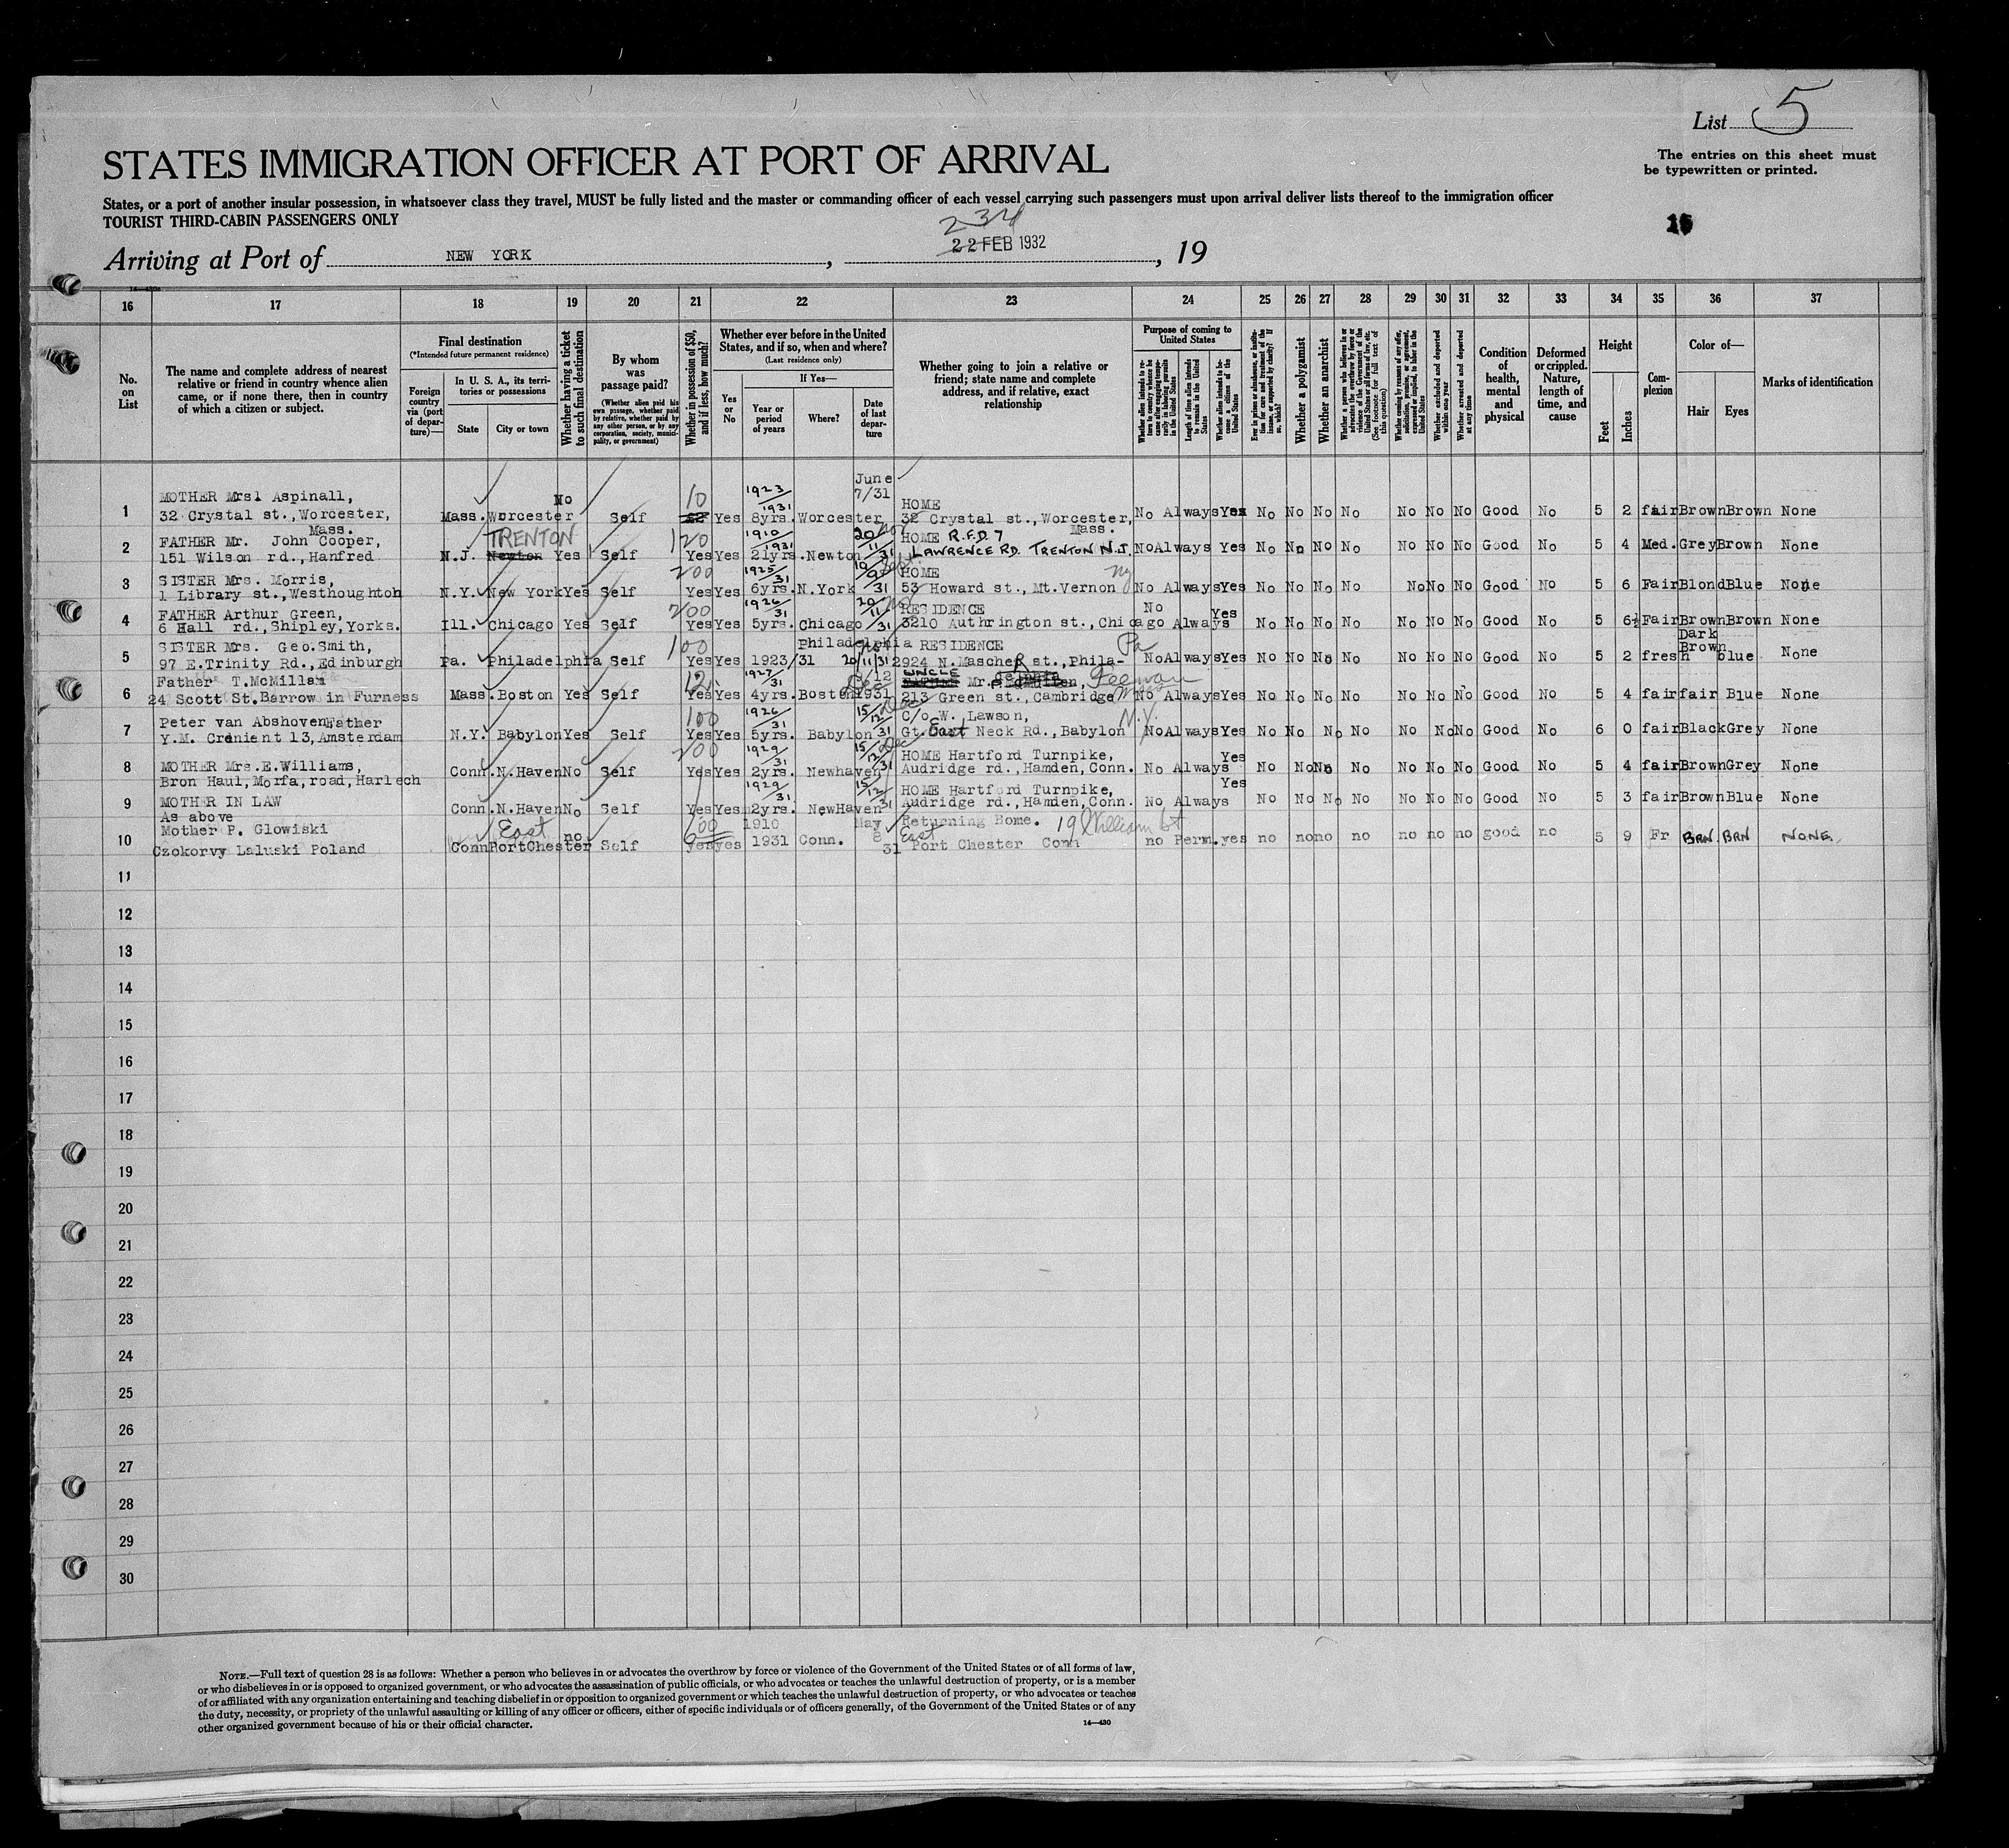 List 5
The entries on this sheet must
be typewritten or printed.
STATES IMMIGRATION OFFICER AT PORT OF ARRIVAL
States, or a port of another insular possession, in whatsoever class they travel, MUST be fully listed and the master or commanding officer of each vessel carrying such passengers must upon arrival deliver lists thereof to the immigration officer
TOURIST THIRD-CABIN PASSENGERS ONLY
234
Arriving at Port of NEW YORK, 22 FEB 1932, 19
16 17 18 19 20 21 22 23 24 25 26 27 28 29 30 31 32 33 34 35 36 37
No. on List
The name and complete address of nearest
relative or friend in country whence alien
came, or if none there, then in country
of which a citizen or subject.
Final destination
(*Intended future permanent residence)
Foreign country via (port of departure)—
In U. S. A., its territories or possessions
State
City or town
Whether having a ticket to such final destination
By whom was passage paid?
(Whether alien paid his own passage, whether paid by relative, whether paid by any other person, or by any corporation, society, municipality, or government)
Whether in possession of $50, and if less, how much?
Whether ever before in the United States, and if so, when and where?
(Last residence only)
Yes or No
If Yes—
Year or period of years
Where?
Date of last departure
Whether going to join a relative or
friend; state name and complete
address, and if relative, exact
relationship
Purpose of coming to United States
Whether alien intends to return to country whence he came after engaging temporarily in laboring pursuits in the United States
Length of time alien intends to remain in the United States
Whether alien intends to become a citizen of the United States
Ever in prison or almshouse, or institution for care and treatment of the insane, or supported by charity? If so, which?
Whether a polygamist
Whether an anarchist
Whether a person who believes in or advocates the overthrow by force or violence of the Government of the United States or all forms of law, etc. (See footnote for full text of this question)
Whether coming by reason of any offer, solicitation, promise, or agreement, expressed or implied, to labor in the United States
Whether excluded and deported within one year
Whether arrested and deported at any time
Condition of health, mental and physical
Deformed or crippled. Nature, length of time, and cause
Height
Feet
Inches
Complexion
Color of—
Hair
Eyes
Marks of identification
1 MOTHER Mrs. Aspinall,
32 Crystal st., Worcester, Mass.
Mass. Worcester No Self 10 Yes 1923/1931 8yrs. Worcester June 7/31
HOME
32 Crystal st., Worcester, Mass.
No Always Yes No No No No No No No Good No 5 2 fair Brown Brown None
2 FATHER Mr. John Cooper,
151 Wilson rd., Hanfred
N.J. Newton TRENTON Yes Self 120 Yes Yes 1910/1931 21yrs. Newton 20/11/31 Nov
HOME R.F.D. 7
LAWRENCE RD. TRENTON N.J.
No Always Yes No No No No No No No Good No 5 4 Med. Grey Brown None
3 SISTER Mrs. Morris,
1 Library st., Westhoughton
N.Y. New York Yes Self 200 Yes Yes 1925/31 6yrs. N.York 19/9/31 Sept
HOME
53 Howard st., Mt.Vernon NY
No Always Yes No No No No No No No Good No 5 6 Fair Blond Blue None
4 FATHER Arthur Green,
6 Hall rd., Shipley, Yorks.
Ill. Chicago Yes Self 200 Yes Yes 1926/31 5yrs. Chicago 20/11/31 Nov
RESIDENCE
3210 Authrington st., Chicago
No Always Yes No No No No No No No Good No 5 6½ Fair Brown Brown None
5 SISTER Mrs. Geo.Smith,
97 E.Trinity Rd., Edinburgh
Pa. Philadelphia Self 100 Yes Yes 1923/31 Philadelphia 20/11/31
RESIDENCE
2924 N.Mascher st., Phila- Pa
No Always Yes No No No No No No No Good No 5 2 fresh Dark Brown blue None
6 Father T.McMillan
24 Scott St. Barrow in Furness
Mass. Boston Yes Self 12 Yes Yes 1927/31 4yrs. Boston 1931 Dec
UNCLE Mr.
213 Green st., Cambridge Mass
No Always Yes No No No No No No No Good No 5 4 fair fair Blue None
7 Peter van Abshoven Father
Y.M. Crenient 13, Amsterdam
N.Y. Babylon Yes Self 100 Yes Yes 1926/31 5yrs. Babylon 15/12/31 Dec
C/o W. Lawson, N.Y.
Gt. East Neck Rd., Babylon
No Always Yes No No No No No No No Good No 6 0 fair Black Grey None
8 MOTHER Mrs.E.Williams,
Bron Haul, Morfa, road, Harlech
Conn. N.Haven No Self 200 Yes Yes 1929/31 2yrs. Newhaven 15/12/31 Dec
HOME Hartford Turnpike,
Audridge rd., Hamden, Conn.
No Always Yes No No No No No No No Good No 5 4 fair Brown Grey None
9 MOTHER IN LAW
As above
Conn. N.Haven No Self Yes Yes 1929/31 2yrs. NewHaven 15/12/31
HOME Hartford Turnpike,
Audridge rd., Hamden, Conn.
No Always Yes No No No No No No No Good No 5 3 fair Brown Blue None
10 Mother P. Glowiski
Czokorvy Laluski Poland
Conn East PortChester no Self 600 yes yes 1910 1931 Conn. May 8 31
Returning Home. 19 William st
East Port Chester Conn
no Perm. yes no no no no no no no good no 5 9 Fr BRN. BRN NONE.
11
12
13
14
15
16
17
18
19
20
21
22
23
24
25
26
27
28
29
30
NOTE.—Full text of question 28 is as follows: Whether a person who believes in or advocates the overthrow by force or violence of the Government of the United States or of all forms of law,
or who disbelieves in or is opposed to organized government, or who advocates the assassination of public officials, or who advocates or teaches the unlawful destruction of property, or is a member
of or affiliated with any organization entertaining and teaching disbelief in or opposition to organized government or which teaches the unlawful destruction of property, or who advocates or teaches
the duty, necessity, or propriety of the unlawful assaulting or killing of any officer or officers, either of specific individuals or of officers generally, of the Government of the United States or of any
other organized government because of his or their official character.
14—430